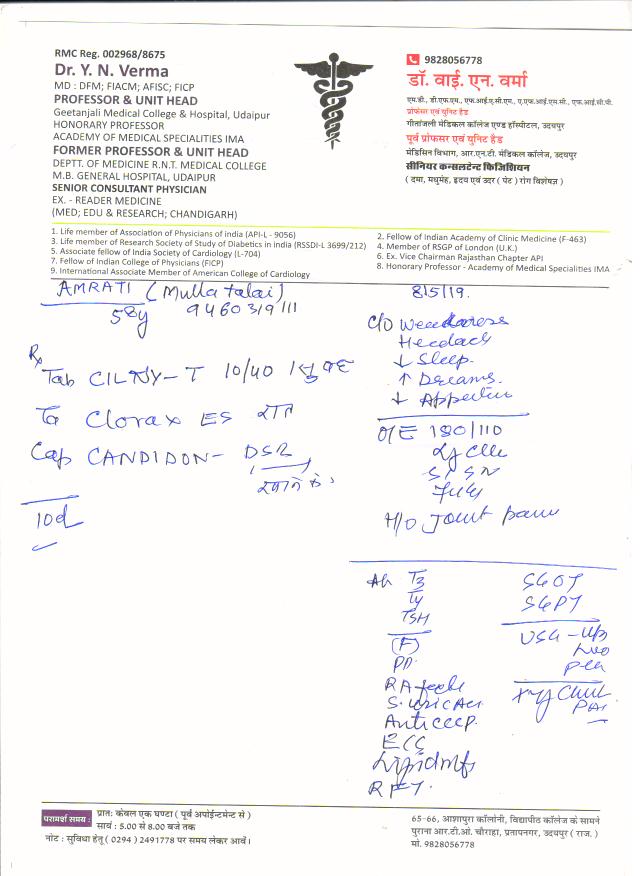 RMC Reg. 002968/8675
Dr. Y. N. Verma
MD : DFM; FIACM; AFISC; FICP
PROFESSOR & UNIT HEAD
Geetanjali Medical College & Hospital, Udaipur
HONORARY PROFESSOR
ACADEMY OF MEDICAL SPECIALITIES IMA
FORMER PROFESSOR & UNIT HEAD
DEPTT. OF MEDICINE R.N.T. MEDICAL COLLEGE
M.B. GENERAL HOSPITAL, UDAIPUR
SENIOR CONSULTANT PHYSICIAN
EX. - READER MEDICINE
(MED; EDU & RESEARCH; CHANDIGARH)
9828056778
डॉ. वाई. एन. वर्मा
एम.डी., डी.एफ.एम., एफ.आई.ए.सी.एम., ए.एफ.आई.एस.सी., एफ.आई.सी.पी.
प्रोफेसर एवं यूनिट हैड
गीतांजली मेडिकल कॉलेज एण्ड हॉस्पीटल, उदयपुर
पूर्व प्रोफेसर एवं यूनिट हैड
मेडिसिन विभाग, आर.एन.टी. मेडिकल कॉलेज, उदयपुर
सीनियर कन्सलटेन्ट फिजिशियन
( दमा, मधुमेह, हृदय एवं उदर (पेट) रोग विशेषज्ञ )
1. Life member of Association of Physicians of india (API-L - 9056)
2. Fellow of Indian Academy of Clinic Medicine (F-463)
3. Life member of Research Society of Study of Diabetics in india (RSSDI-L 3699/212)
4. Member of RSGP of London (U.K.)
5. Associate fellow of India Society of Cardiology (L-704)
6. Ex. Vice Chairman Rajasthan Chapter API
7. Fellow of Indian College of Physicians (FICP)
8. Honorary Professor - Academy of Medical Specialities IMA
9. International Associate Member of American College of Cardiology
AMRATI (Mulla talai)
58y 9460319111
Rx
Tab CILNY-T 10/40
Ta Clorax ES रात
Cap CANDIDON- DSR
10d
8/5/19.
C/O Weakness
Headach
↓ Sleep.
↑ Dreams.
↓
O/E 180/110
H/O Joint pain
T3
T4
TSH
(F)
PP.
RA
S. Uric Aci
Anti ccp.
ECG
RFT.
SGOT
SGPT
USG -
परामर्श समय :
प्रातः केवल एक घण्टा ( पूर्व अपोईन्टमेन्ट से )
सायं : 5.00 से 8.00 बजे तक
नोट : सुविधा हेतू ( 0294 ) 2491778 पर समय लेकर आवें।
65-66, आशापुरा कॉलोनी, विद्यापीठ कॉलेज के सामने
पुराना आर.टी.ओ. चौराहा, प्रतापनगर, उदयपुर ( राज. )
मो. 9828056778